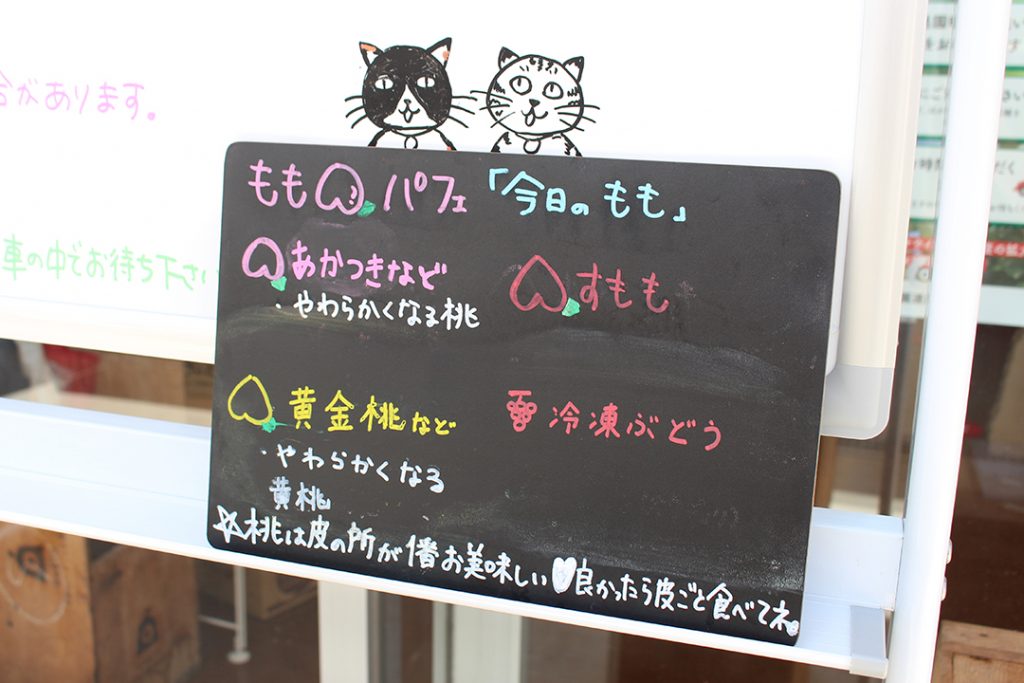 合があります。
車の中でお待ち下さい
もも パフェ 「今日のもも」
あかつきなど
・やわらかくなる桃
すもも
黄金桃など
・やわらかくなる
黄桃
冷凍ぶどう
☆桃は皮の所が1番お美味しい♥良かったら皮ごと食べてネ。